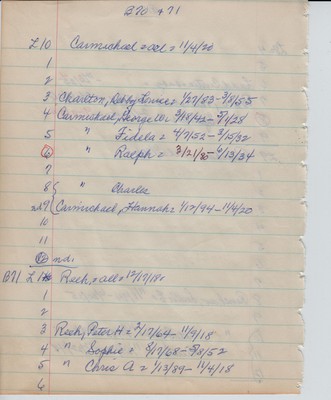 B70 & 71
L10 Carmichael = all = 11/4/20
1
2
3 Charlton, Louise = 1/27/53 - 3/5/55
4 Carmichael, George W.
5 " Fidela = 4/7/52 - 3/15/32
6 " Ralph = 3/21/85 - 6/13/34
7
8 " Charles
9 Carmichael, Hannah = 11/4/20
10
11
12 nd.
B71 L1 Resh, = all = 12/17/18
1
2
3 Resh, Peter H = 2/17/64 - 11/9/18
4 " Sophie = 8/17/68 - 9/8/52
5 " Chris A = 1/13/89 - 11/4/18
6